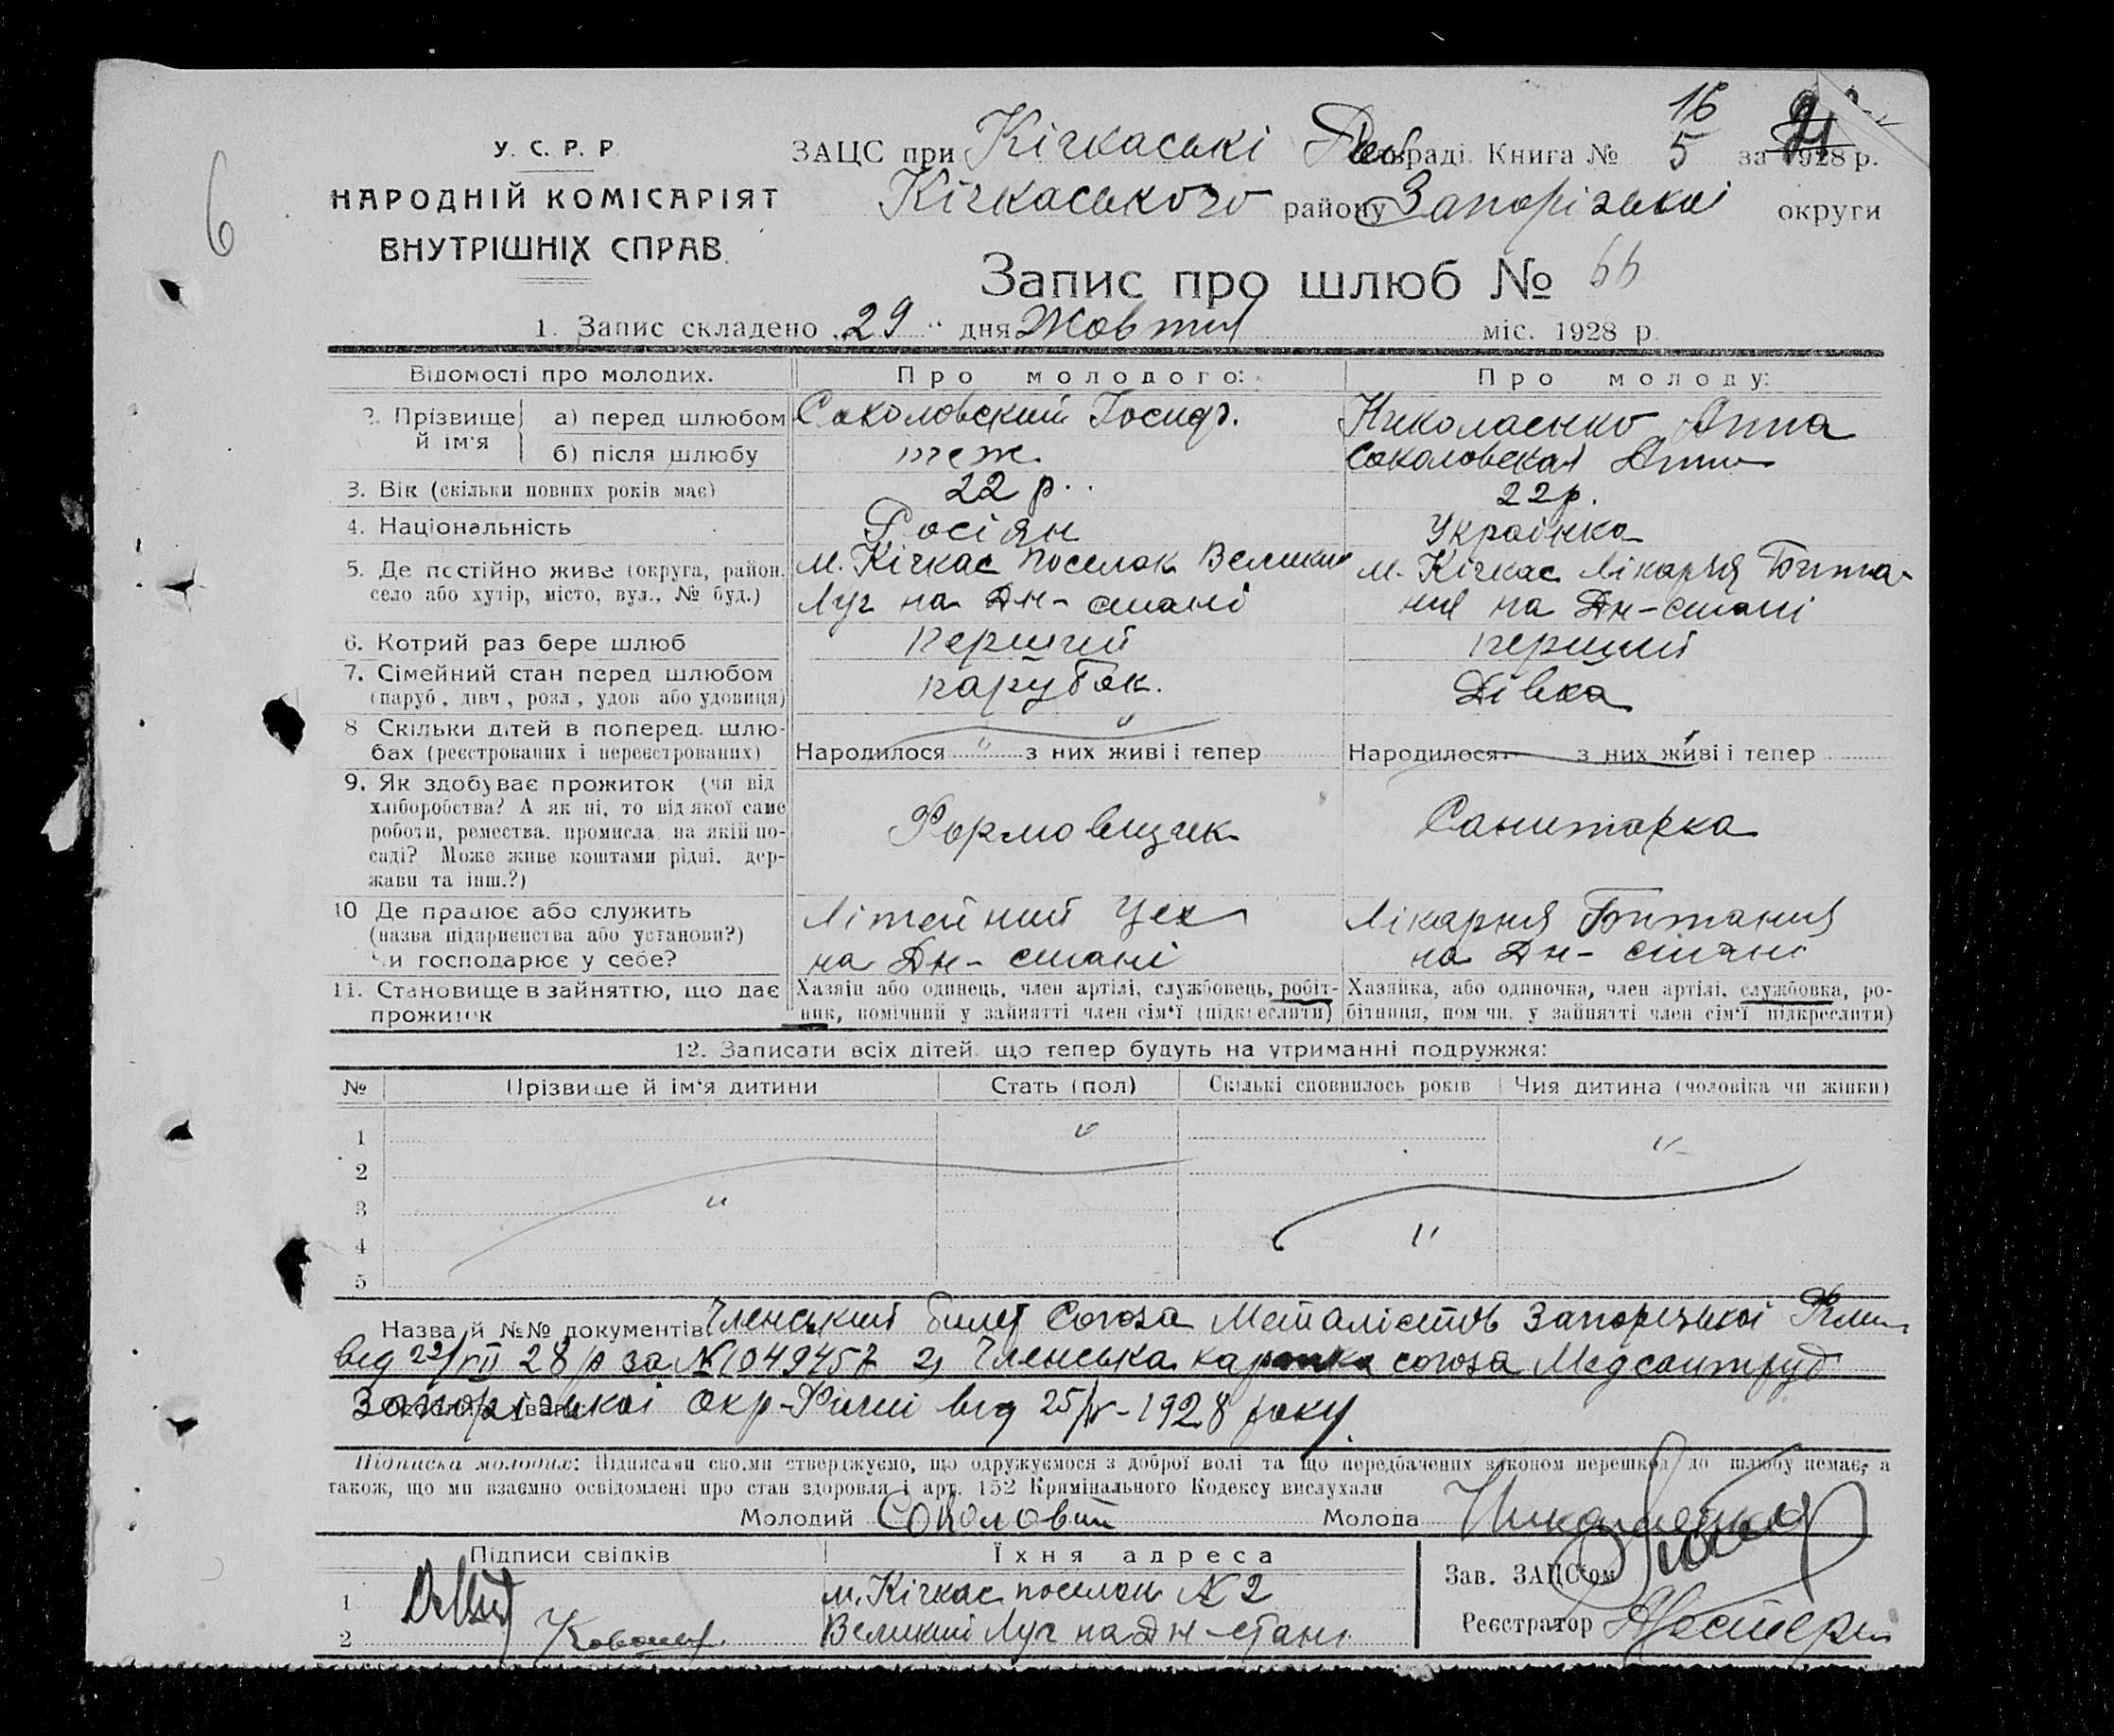 16
6
У. С. Р. Р.
НАРОДНІЙ КОМІСАРІЯТ
ВНУТРІШНІХ СПРАВ.
ЗАЦС при Кічкаські раді. Книга № 5 за 1928 р.
Кічкаського району Запорізької округи
Запис про шлюб № 66
1. Запис складено „29“ дня Жовтня міс. 1928 р.
Відомості про молодих. Про молодого: Про молоду:
2. Прізвище й ім'я а) перед шлюбом Соколовский Иосиф. Николаенко Анна
б) після шлюбу теж. Соколовская Анна
3. Вік (скільки повних років має) 22 р. 22 р.
4. Національність Росіян Українка
5. Де постійно живе (округа, район, м. Кічкас поселок Великий м. Кічкас лікарня Бита-
село або хутір, місто, вул., № буд.) Луг на Дн-стані ния на Дн-стані
6. Котрий раз бере шлюб перший перший
7. Сімейний стан перед шлюбом парубок. Дівка
(паруб., дівч., розл., удов. або удовиця)
8 Скільки дітей в поперед. шлю-
бах (реєстрованих і нереєстрованих) Народилося " з них живі і тепер Народилося з них живі і тепер
9. Як здобуває прожиток (чи від
хліборобства? А як ні, то від якої саме
роботи, ремества, промисла, на якій по- Формовщик Санитарка
саді? Може живе коштами рідні, дер-
жави та інш.?)
10 Де працює або служить Літейний цех Лікарня Битания
(назва підприємства або установи?) на Дн-стані на Дн-стані
Чи господарює у себе?
11. Становище в зайнятгю, що дає Хазяїн або одинець, член артілі, службовець, робіт- Хазяйка, або одиночка, член артілі, службовка, ро-
прожиток ник, помічний у зайнятті член сім'ї (підкреслити) бітниця, помічн. у зайнятті член сім'ї підкреслити)
12. Записати всіх дітей, що тепер будуть на утриманні подружжя:
№ Прізвище й ім'я дитини Стать (пол) Скількі сповнилось років Чия дитина (чоловіка чи жінки)
1 " "
2
3 "
4 "
5
Назва й №№ документів: Членський билет Союза Металістів Запорізької
від 22/VII 28 р за № 1049457 2, Членська картка союза Медсантруд
Запорізької Окр-Філії від 25/IV-1928 року.
Підписка молодих: Підписами своїми стверджуємо, що одружуємося з доброї волі та що передбачених законом перешкод до шлюбу немає, а
також, що ми взаємно освідомлені про стан здоровля і арт. 152 Кримінального Кодексу вислухали
Молодий Соколовий Молода Николаенко
Підписи свідків Їхня адреса
Зав. ЗАЦС'ом
1 м. Кічкас поселок № 2
Реєстратор
2 Великий Луг на Дн-стані